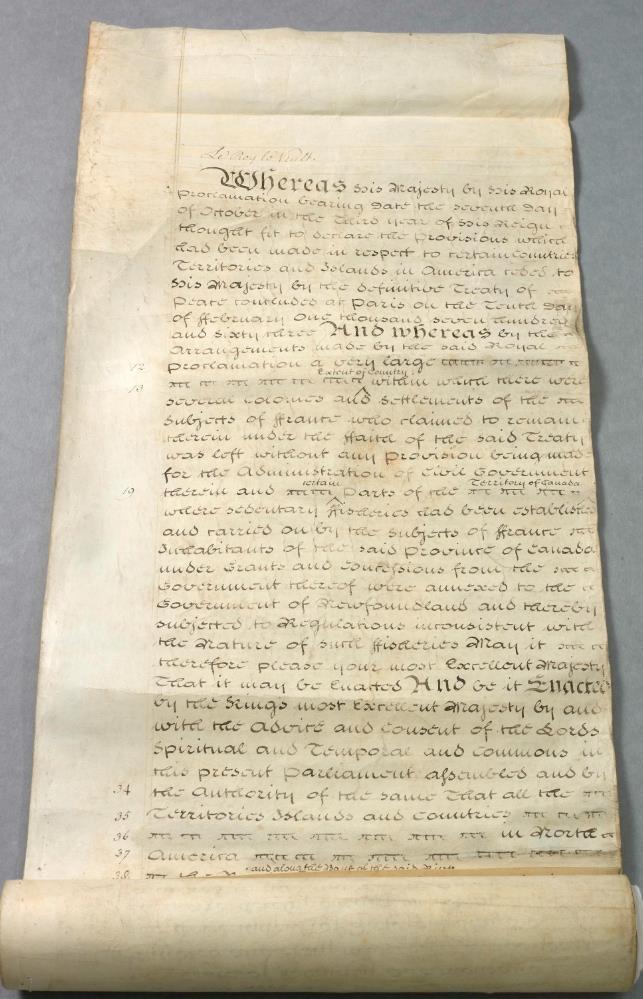 Le Roy le Veult.
Whereas His Majesty by His Royal
Proclamation bearing Date the Seventh Day
of October in the Third year of His Reign
thought fit to declare the Provisions which
had been made in respect to certain Countries
Territories and Islands in America ceded to
His Majesty by the definitive Treaty of
Peace concluded at Paris on the Tenth Day
of ffebruary One thousand seven hundred
and sixty three And whereas by the
Arrangements made by the said Royal
12 Proclamation a very large
Extent of Country
13 within which there were
several Colonies and Settlements of the
Subjects of ffrance who claimed to remain
therein under the ffaith of the said Treaty
was left without any Provision being made
for the Administration of Civil Government
certain Territory of Canada
19 therein and Parts of the
where sedentary ffisheries had been established
and carried on by the Subjects of ffrance
Inhabitants of the said Province of Canada
under Grants and Concessions from the
Government thereof were annexed to the
Government of Newfoundland and thereby
subjected to Regulations inconsistent with
the Nature of such ffisheries May it
therefore please your most Excellent Majesty
That it may be Enacted And be it Enacted
by the Kings most Excellent Majesty by and
with the Advice and Consent of the Lords
Spiritual and Temporal and Commons in
this present Parliament assembled and by
34 the Authority of the same That all the
35 Territories Islands and Countries
36 in North
37 America
and along the Bank of the said River
38